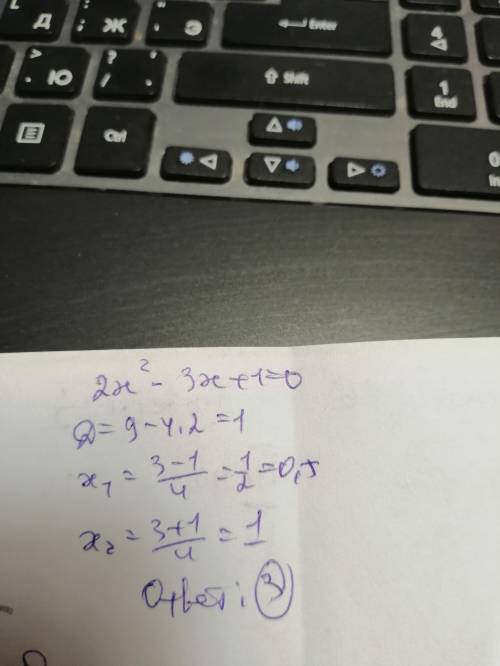 Д Ж Э Enter 4
> . Ю ? / , Shift 1 End
Ctrl 0 In
2x² - 3x + 1 = 0
D = 9 - 4.2 = 1
x₁ = 3-1/4 = 1/2 = 0,5
x₂ = 3+1/4 = 1
Ответ: 3